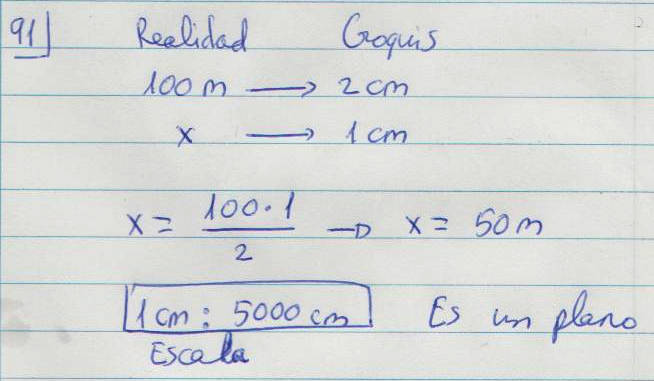 91 Realidad Croquis
100 m → 2 cm
x → 1 cm
x = 100·1 / 2 → x = 50 m
1 cm : 5000 cm Es un plano
Escala